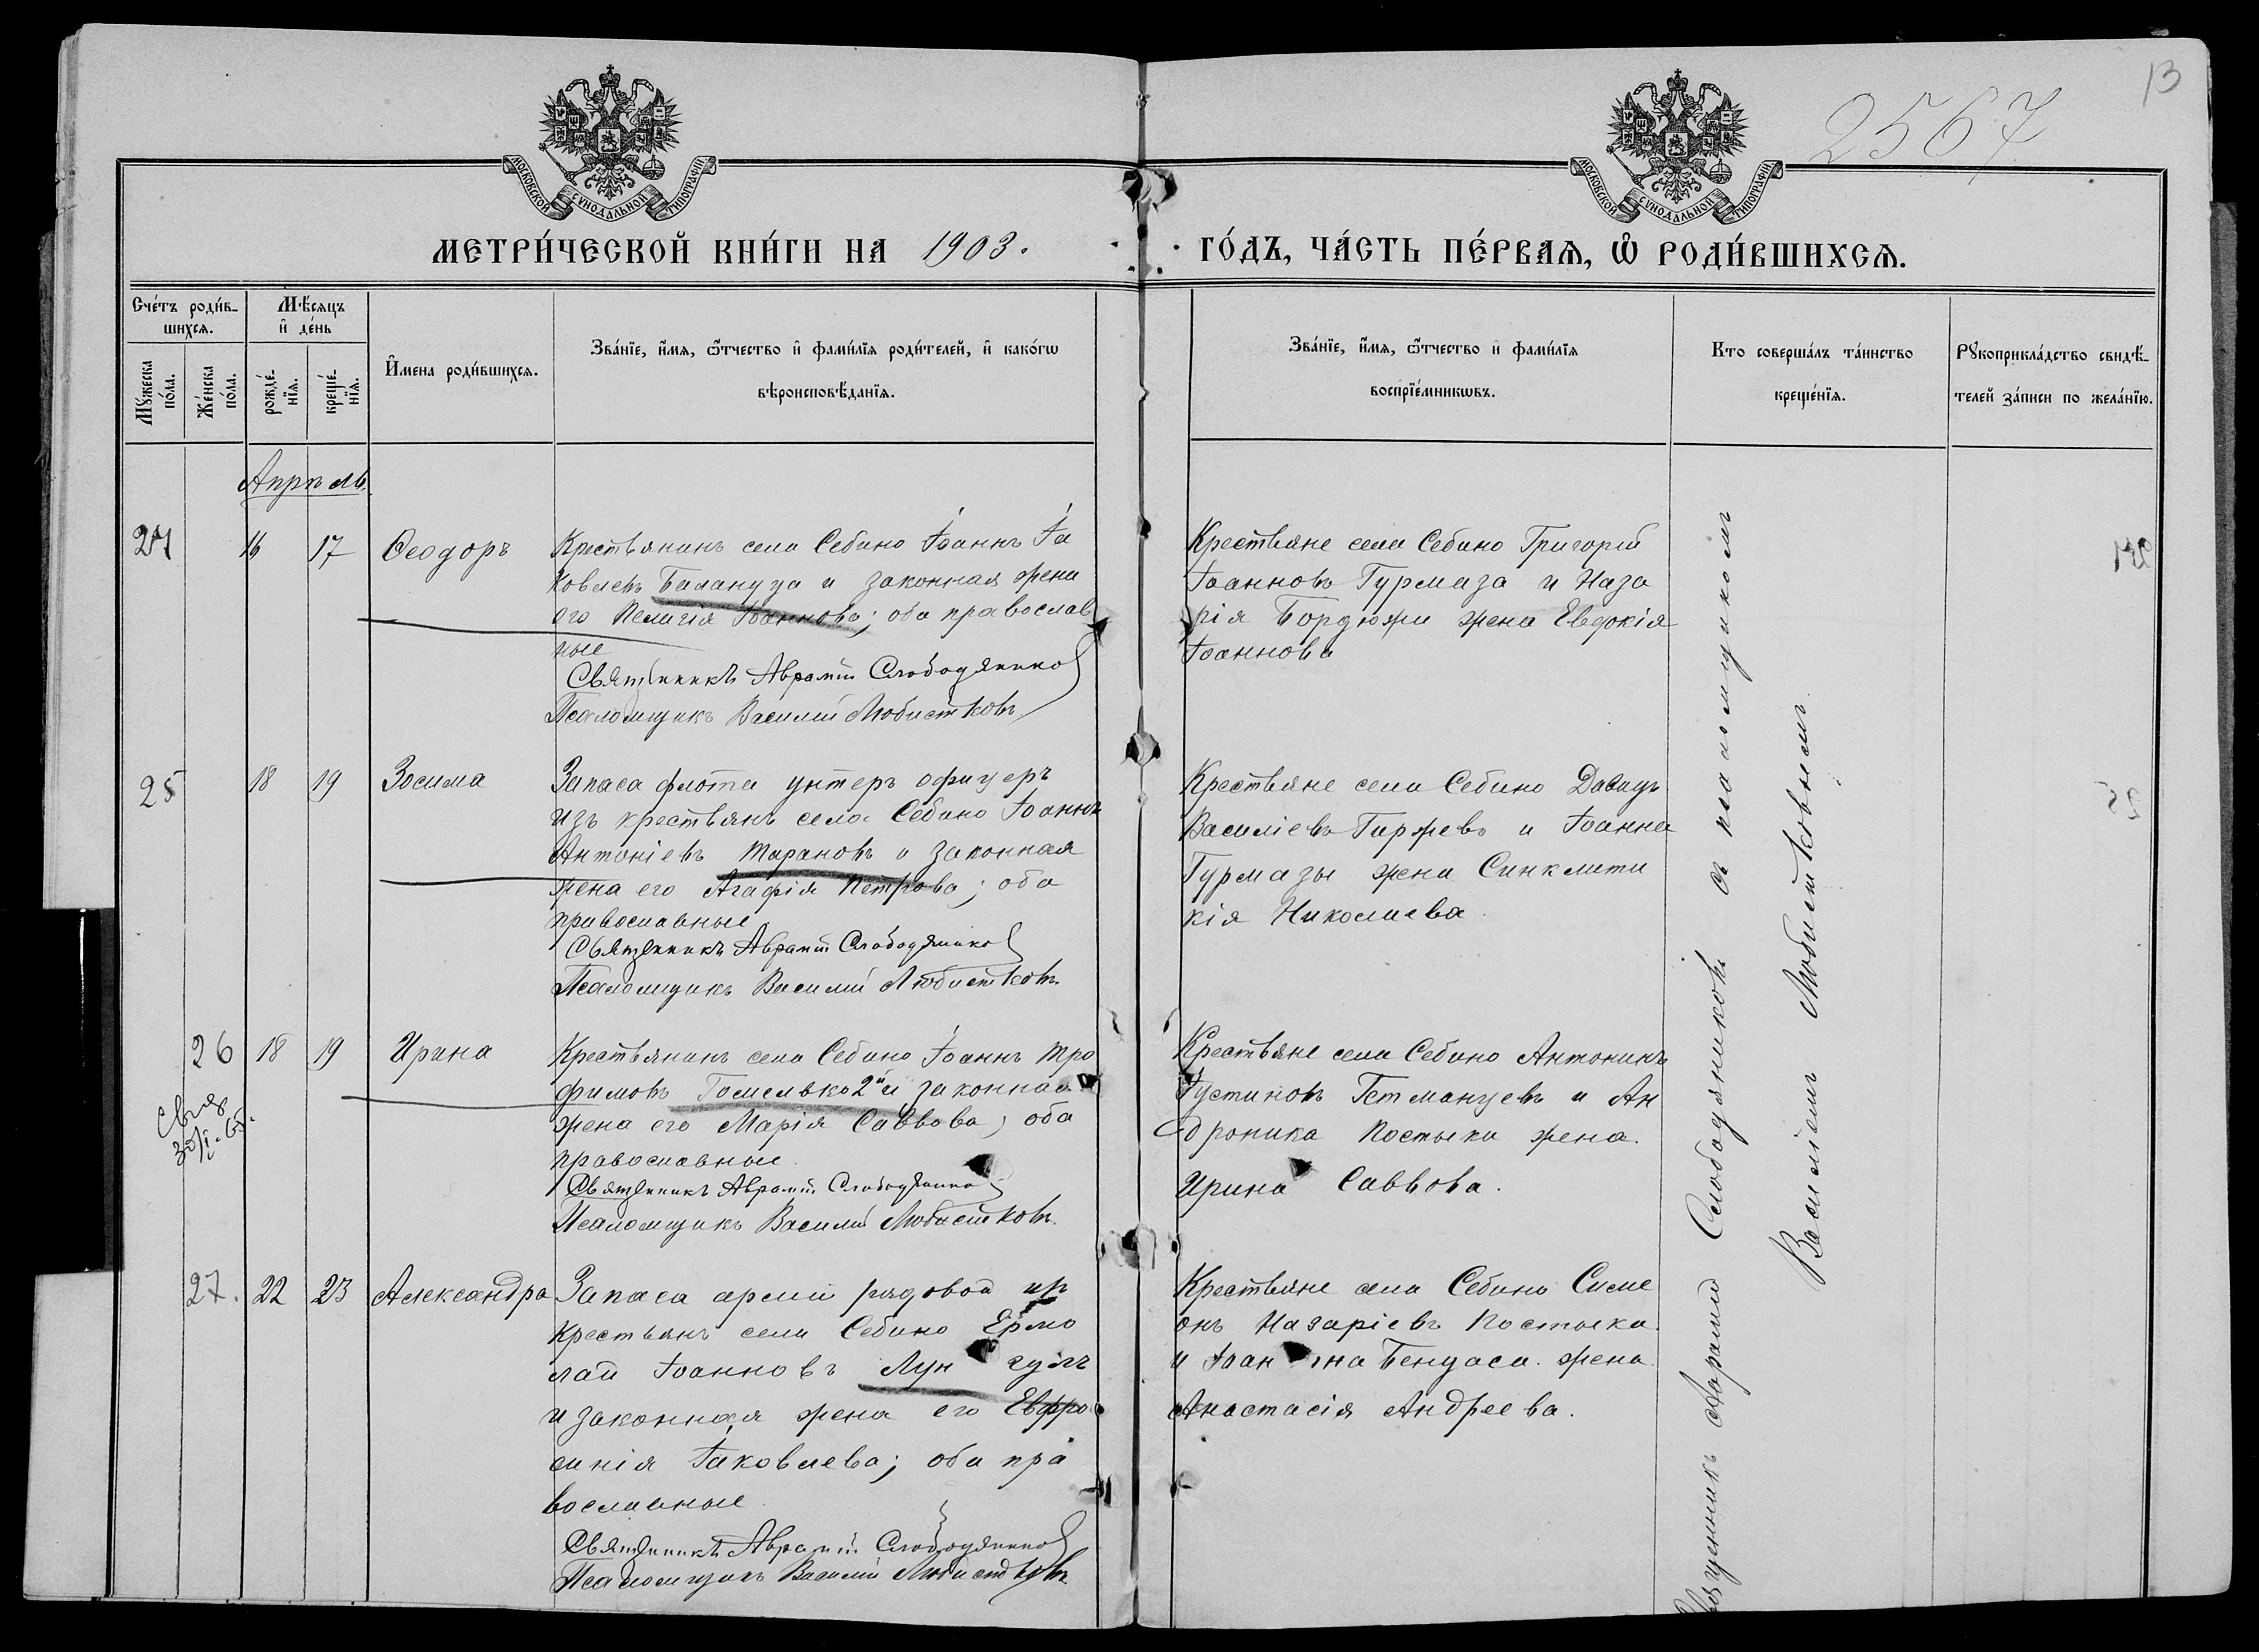 13
2567
МОСКОВСКОЙ СѴНОДАЛЬНОЙ ТИПОГРАФІИ
МОСКОВСКОЙ СѴНОДАЛЬНОЙ ТИПОГРАФІИ
МЕТРИ́ЧЕСКОЙ КНИ́ГИ НА 1903.
ГО́ДЪ, ЧА́СТЬ ПЕ́РВАѦ, Ѽ РОДИ́ВШИХСѦ.
Сче́тъ роди́в-
шихсѧ.
Мꙋ́жеска по́ла.
Же́нска по́ла.
Мѣ́сѧцъ
и҆ де́нь
рожде́-
нїѧ.
креще́-
нїѧ.
И҆мена роди́вшихсѧ.
Зва́нїе, и҆́мѧ, ѻ҆́тчество и҆ фами́лїѧ роди́телей, и҆ како́гѡ
вѣроисповѣ́данїѧ.
Зва́нїе, и҆́мѧ, ѻ҆́тчество и҆ фами́лїѧ
воспрїе́мникѡвъ.
Кто соверша́лъ та́инство
креще́нїѧ.
Рꙋкоприкла́дство свидѣ́-
телей за́писи по жела́нїю.
Апрѣль
24 16 17 Ѳеодоръ
Крестьянинъ села Себино Іоаннъ Іа
ковлевъ Балануца и законная жена
его Пелагія Іоаннова; оба православ
ные
Священникъ Аврамій Слободяников
Псаломщикъ Василій Любистковъ
Крестьяне села Себино Григорій
Іоанновъ Гурмаза и Наза
рія Бордюжи жена Евдокія
Іоаннова
25 18 19 Зосима
Запаса флота унтеръ офицеръ
изъ крестьянъ села Себино Іоаннъ
Антоніевъ Тарановъ и законная
жена его Агафія Петрова; оба
православные
Священникъ Аврамій Слободяников
Псаломщикъ Василій Любистковъ
Крестьяне села Себино Давидъ
Василіевъ Гиржевъ и Іоанна
Гурмазы жена Синклити
кія Николаева
26 18 19 Ирина
30/I-65.
Крестьянинъ села Себино Іоаннъ Тро
фимовъ Гомелько 2й и законная
жена его Марія Саввова; оба
православные
Священникъ Аврамій Слободяников
Псаломщикъ Василій Любистковъ
Крестьяне села Себино Антонинъ
Іустиновъ Гетманцевъ и Ан
дроника Костыки жена
Ирина Саввова.
27. 22 23 Александра
Запаса арміи рядовой из
крестьянъ села Себино Ермо
лай Іоанновъ Лун гулъ
и законная жена его Евфро
синія Іаковлева; оба пра
вославные
Священникъ Аврамій Слободяников
Псаломщикъ Василій Любистковъ
Крестьяне села Себино Симе
онъ Назаріевъ Костыка
и Іоанна Бендаса жена
Анастасія Андреева.
Священникъ Аврамій Слободяниковъ съ псаломщикомъ
Василіемъ Любистковымъ